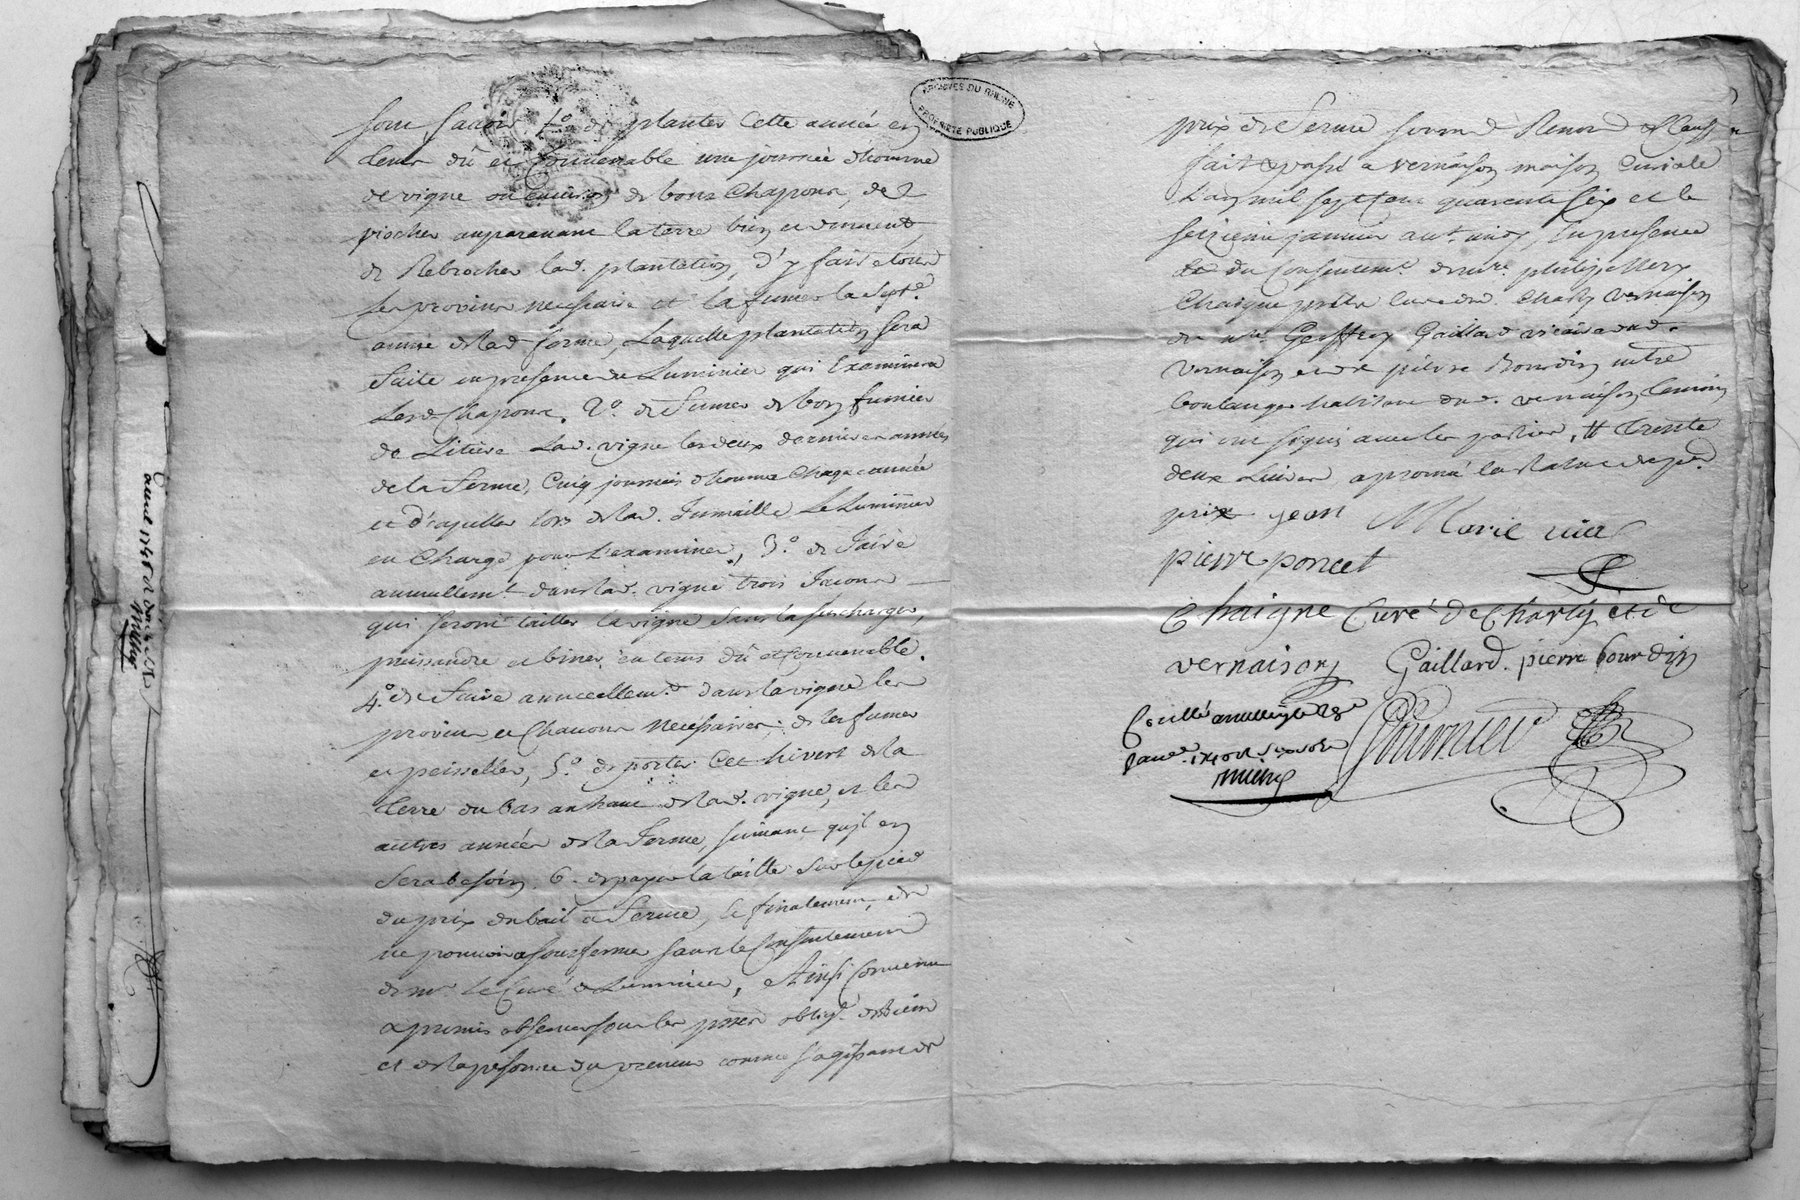 ARCHIVES DU RHÔNE
PROPRIÉTÉ PUBLIQUE
sont sçavoir 1º de planter cette année en
tems dû et convenable une journée d'homme
de vigne ou environ de bons chapons, de
piocher auparavant la terre bien et duement
de Rebrocher lad. plantation, d'y faire tous
les provins necessaire et la fumer la sept.e
année de lad. ferme, Laquelle plantation sera
faite en presence du Luminier qui Examinera
Lesd. Chapons. 2º de fumer de bon fumier
de Litiere Lad. vigne les deux dernieres années
de la ferme, Cinq journées d'homme chaque année
et d'apeller lors de lad. fumaille Le Luminier
en Charge pour L'examiner, 3º de faire
annuellemt dans lad. vigne trois facons
qui seront tailler la vigne sans la surcharger,
puissandre et biner en tems dû et convenable.
4º de faire annuellemt dans la vigne les
provins et Chavons necessaires, de les fumer
et peisseller, 5º de porter Cet hivert de la
terre du bas au haut de lad. vigne, et les
autres années de la ferme, suivant qu'il en
sera besoin, 6º de payer la taille sur le pied
du prix du bail à ferme, et finalement de
ne pouvoir sousfermer sans le Consentement
de mr Le Curé et Luminier, Ainsi Convenu
a promis observer sous les peines oblig. de biens
et de la personne du preneur comme s'agissant de
prix de ferme
fait et passé a vernaison maison Curiale
L'an mil sept cent quarante six et le
seizieme janvier avt midy, En presence
et du Consentemt de mre philippe
Chaigne prêtre Curé de Charly vernaison
de mre Geoffroy Gaillard vicaire dud.
vernaison et de pierre Bourdin mtre
boulanger habitant dud. vernaison temoins
qui ont signé avec les parties, # trente
deux Livres approuvé
prix jean Marie
pierre poncet
Chaigne Curé de Charly et de
vernaison Gaillard. pierre bourdin
Fournier